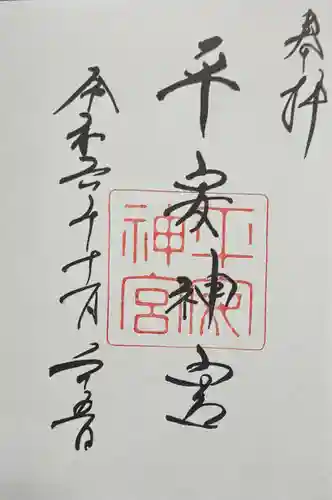 奉拝
平安神宮
平安神宮
令和六年十一月二十五日